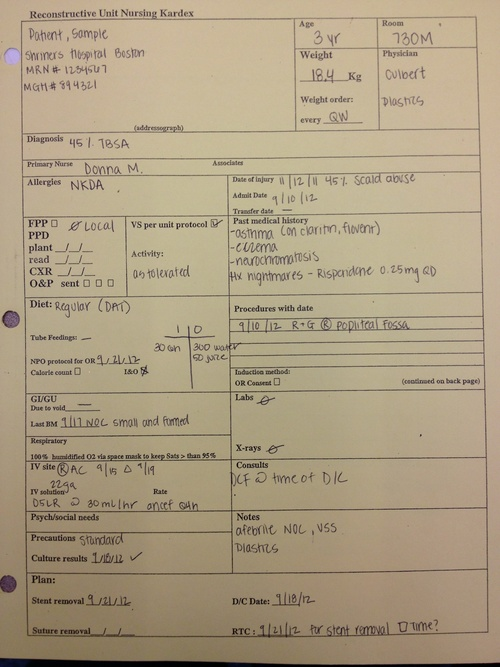 Reconstructive Unit Nursing Kardex
Patient, Sample
Shriners Hospital Boston
MRN# 1234567
MGH# 894321
(addressograph)
Age
3 yr
Room
730M
Weight
18.4 Kg
Weight order:
every QW
Physician
Culbert
Plastics
Diagnosis 45% TBSA
Primary Nurse Donna M. Associates
Allergies NKDA
Date of injury 11/12/11 45% scald abuse
Admit Date 9/10/12
Transfer date —
FPP □ ø Local
PPD
plant __/__/__
read __/__/__
CXR __/__/__
O&P sent □ □ □
VS per unit protocol ☑
Activity:
as tolerated
Past medical history
-asthma (on claritin, flovent)
-eczema
-neurochromatosis
Hx nightmares - Risperidone 0.25mg QD
Diet: Regular (DAT)
I O
30 can 300 water
50 juice
Tube Feedings: —
NPO protocol for OR 9/21/12
Calorie count □ I&O ☒
Procedures with date
9/10/12 R+G Ⓡ popliteal fossa
Induction method:
OR Consent □ (continued on back page)
GI/GU
Due to void —
Last BM 9/17 NOC small and formed
Labs ø
Respiratory
100% humidified O2 via space mask to keep Sats > than 95%
X-rays ø
IV site Ⓡ AC 9/15 Δ 9/19
22ga
IV solution Rate
D5LR @ 30mL/hr ancef Q4h
Consults
DCF @ time of D/C
Psych/social needs
Precautions Standard
Culture results 9/18/12 ✓
Notes
afebrile NOC, VSS
Plastics
Plan:
Stent removal 9/21/12
D/C Date: 9/18/12
Suture removal __/__/__
RTC: 9/21/12 for stent removal □ Time?